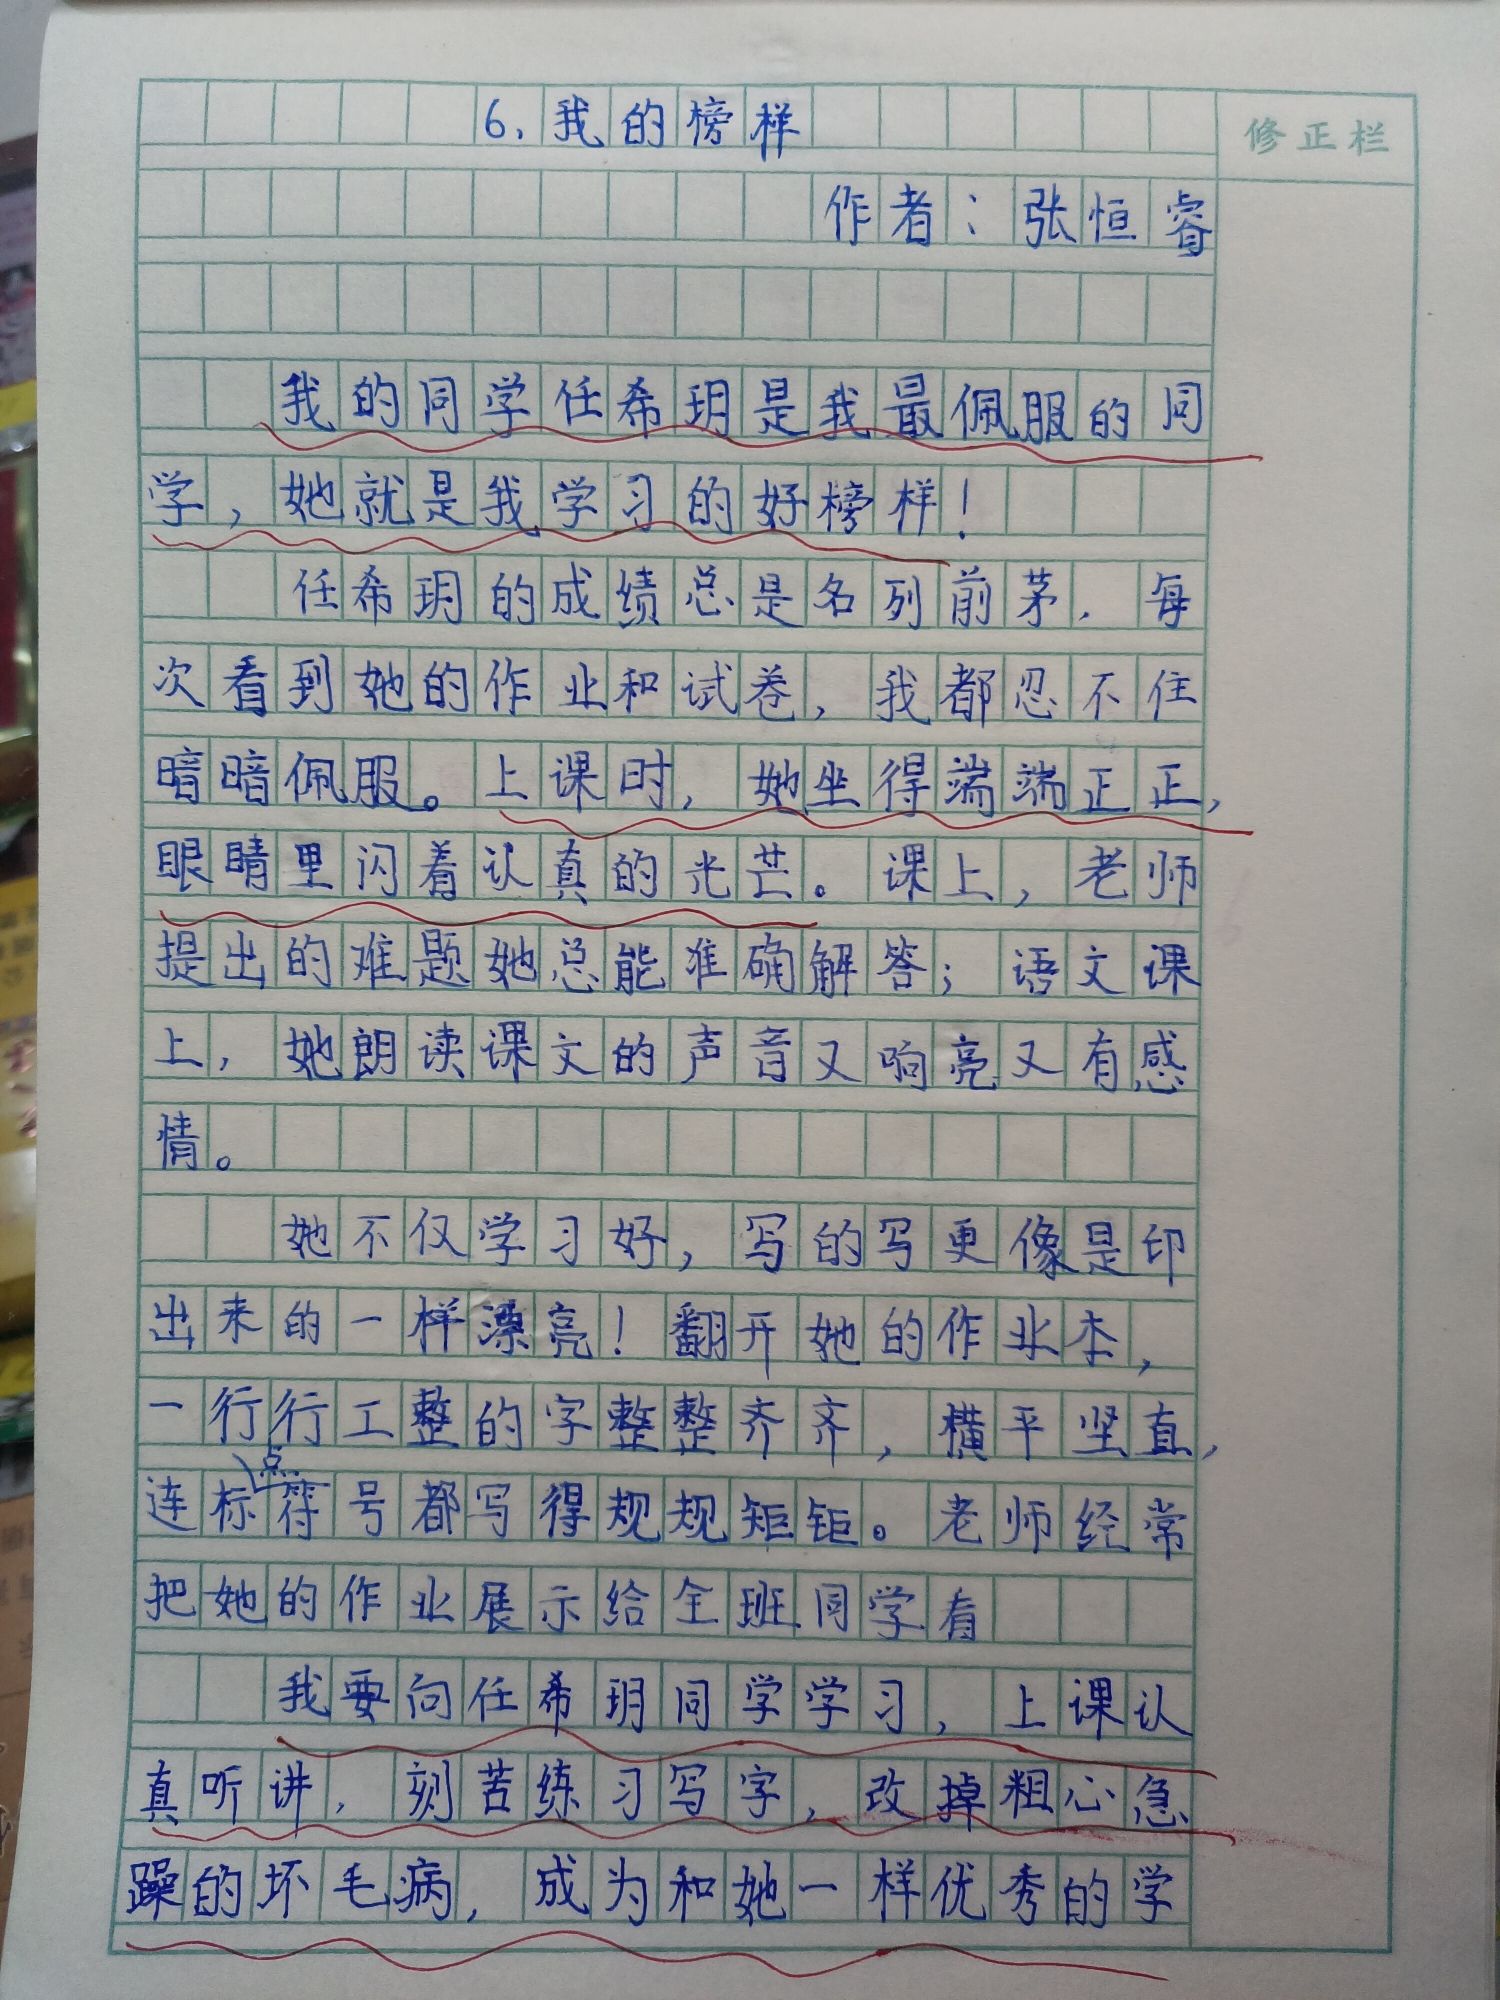 6.我的榜样
修正栏
作者：张恒睿
我的同学任希玥是我最佩服的同
学，她就是我学习的好榜样！
任希玥的成绩总是名列前茅，每
次看到她的作业和试卷，我都忍不住
暗暗佩服。上课时，她坐得端端正正，
眼睛里闪着认真的光芒。课上，老师
提出的难题她总能准确解答；语文课
上，她朗读课文的声音又响亮又有感
情。
她不仅学习好，写的写更像是印
出来的一样漂亮！翻开她的作业本，
一行行工整的字整整齐齐，横平坚直，
连标点符号都写得规规矩钜。老师经常
把她的作业展示给全班同学看
我要向任希玥同学学习，上课认
真听讲，刻苦练习写字，改掉粗心急
躁的坏毛病，成为和她一样优秀的学